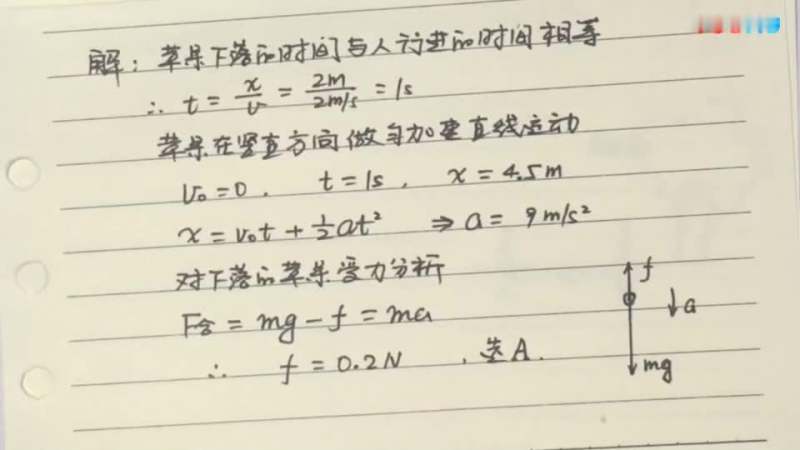 解：苹果下落的时间与人行进的时间相等
∴ t = x/v = 2m/2m/s = 1s
苹果在竖直方向做匀加速直线运动
V₀=0. t=1s. x=4.5m
x = v₀t + ½at² ⇒ a = 9m/s²
对下落的苹果受力分析
F合 = mg - f = ma
∴ f = 0.2N ，选A.
f
a
mg